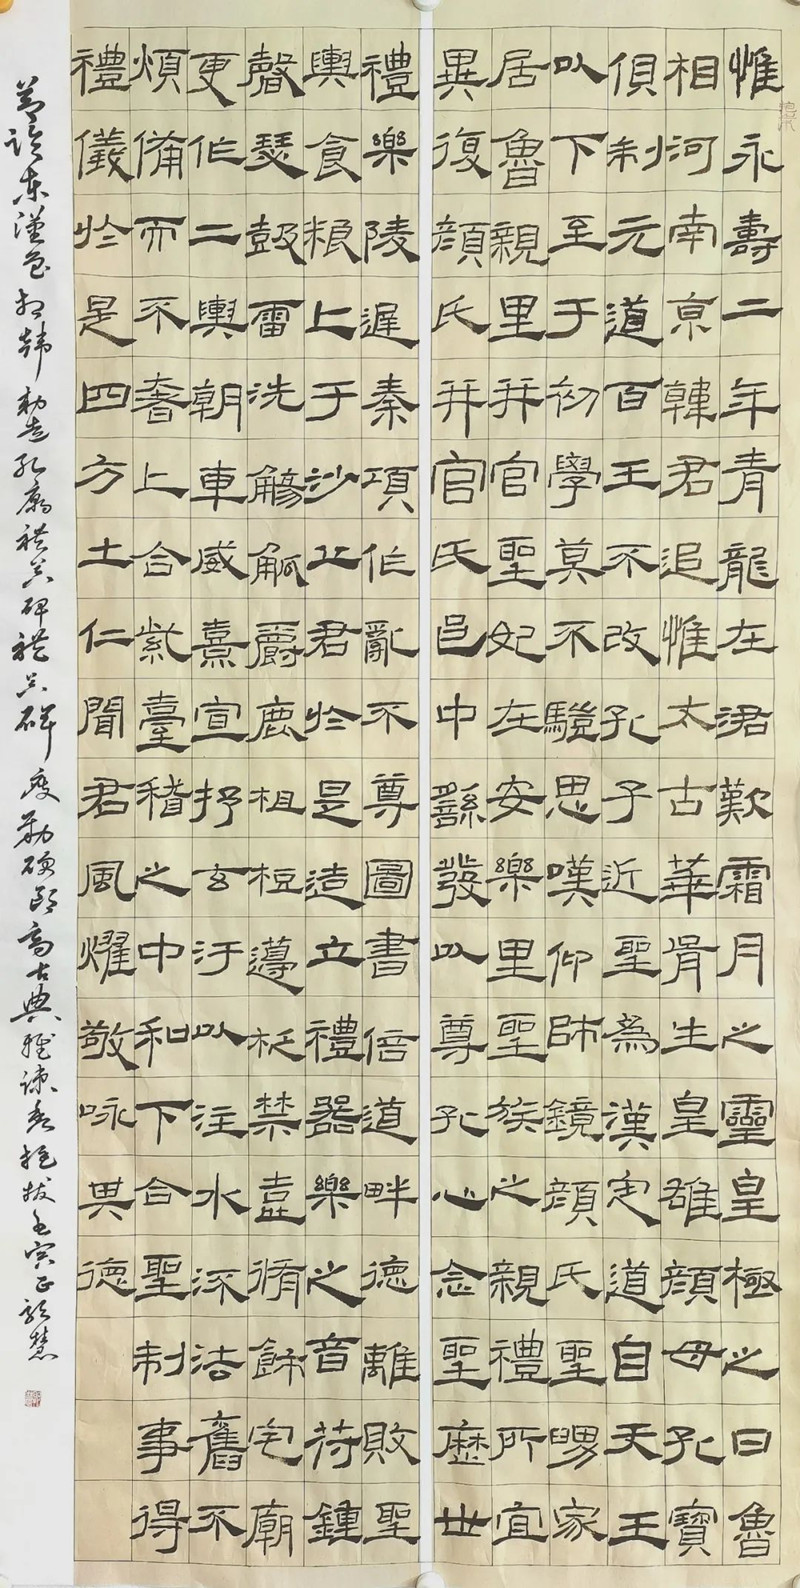 惟永壽二年青龍在涒歎霜月之靈皇極之日魯
相河南京韓君追惟太古華胥生皇雄顏母孔寶
俱制元道百王不改孔子近聖為漢定道自天王
以下至于初學莫不驥思嘆仰師鏡顏氏聖舅家
居魯親里并官聖妃在安樂里聖族之親禮所宜
異復顏氏并官氏邑中繇發以尊孔心念聖歷世
禮樂陵遲秦項作亂不尊圖書倍道畔德離敗聖
輿食糧上于沙丘君於是造立禮器樂之音符鍾
磬瑟鼓雷洗觴觚爵鹿柤梪籩柉禁壺脩飾宅廟
更作二輿朝車威熹宣抒玄汙以注水流法舊不
煩備而不奢上合紫臺稽之中和下合聖制事得
禮儀於是四方土仁聞君風燿敬咏其德
節臨東漢魯相韓勑造孔廟禮器碑禮器碑瘦勁硬朗高古典雅疎秀挺拔壬寅